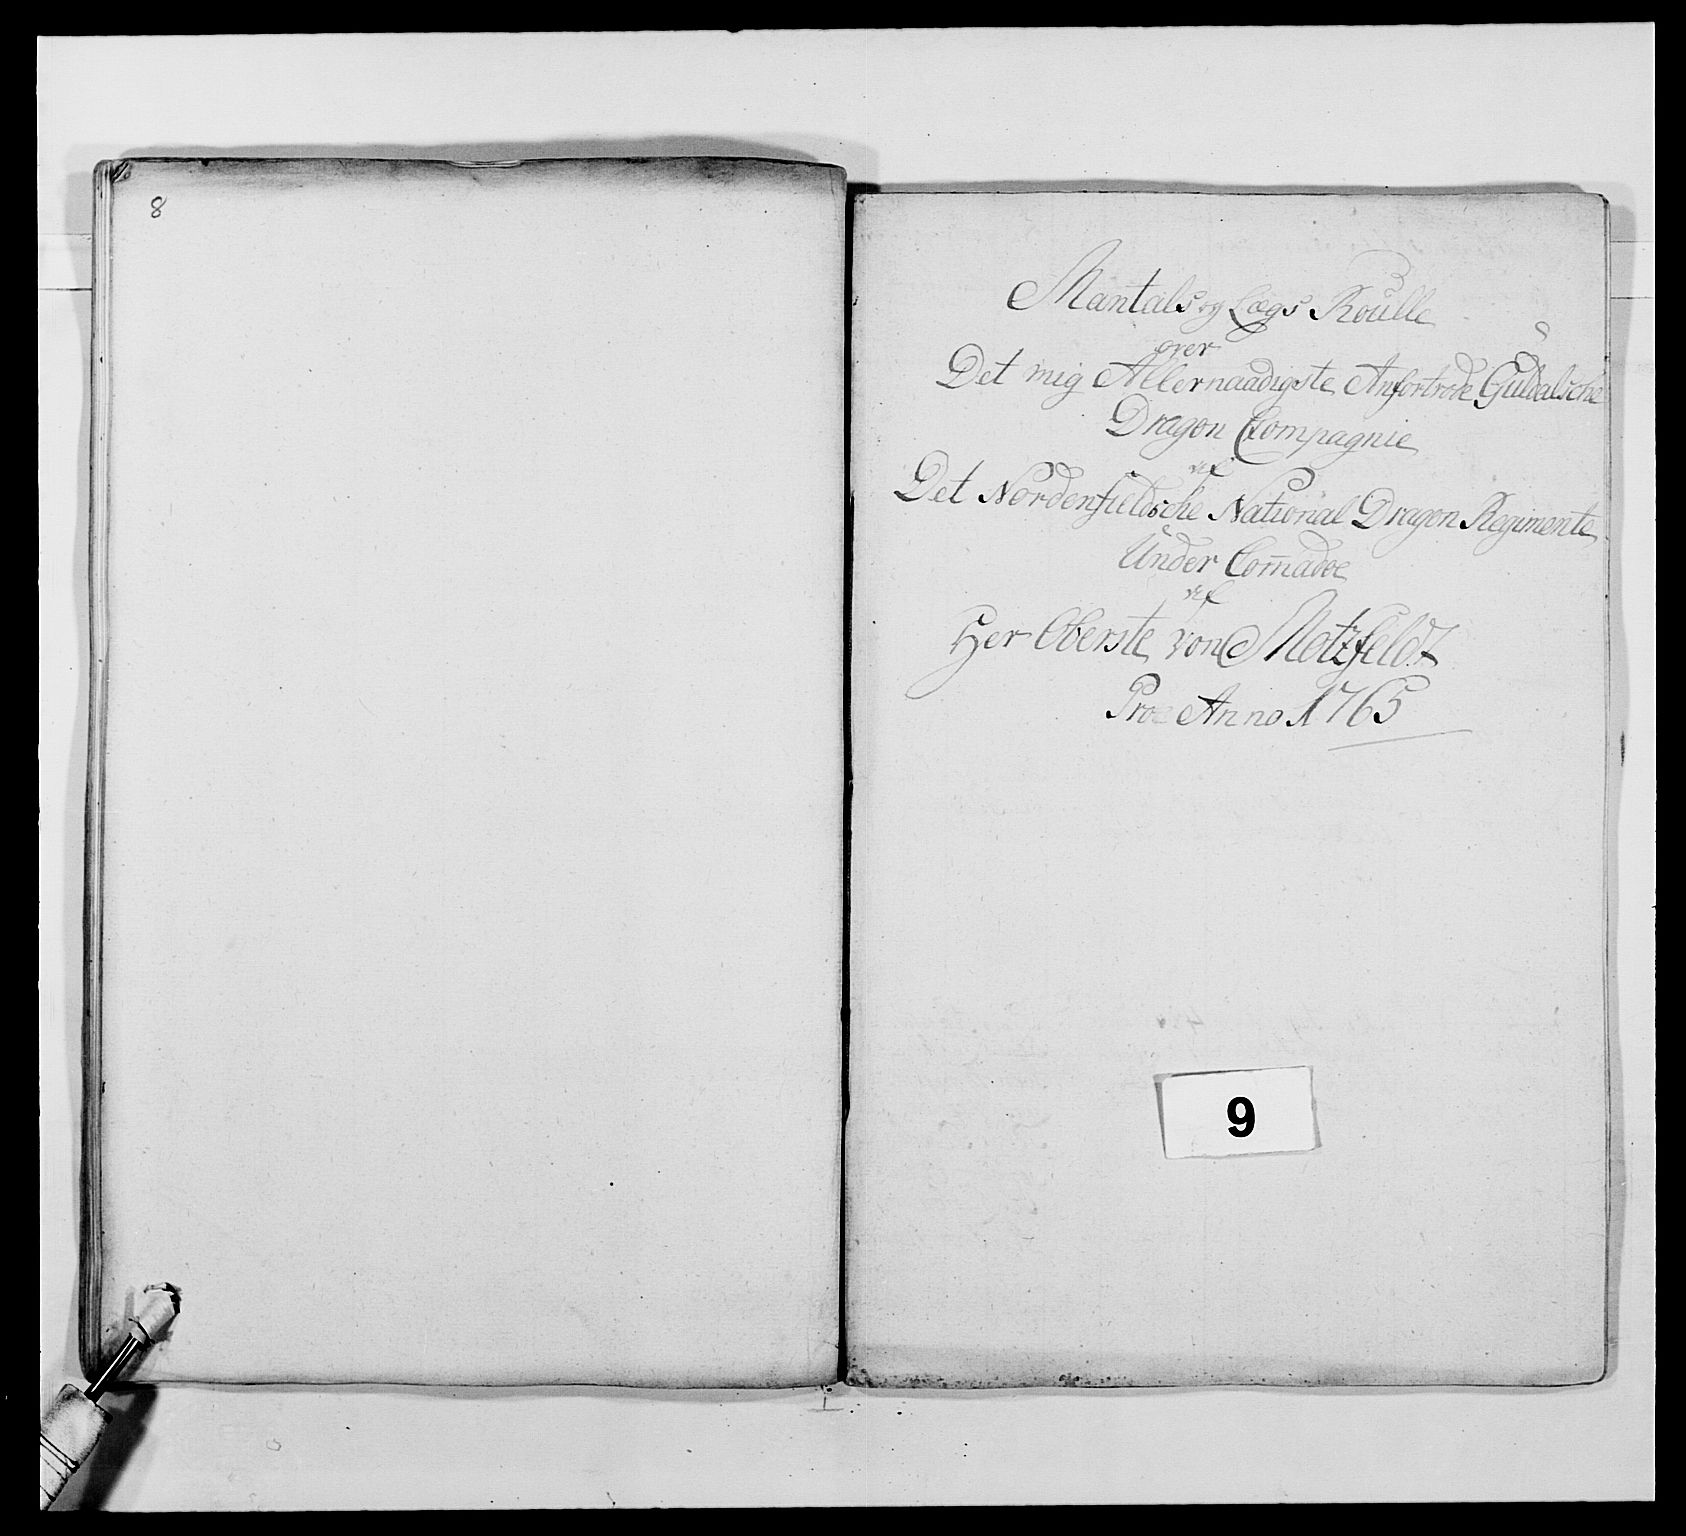 8
Mantals og Lægs Roulle
over
Det mig Allernaadigste Anfortrode Guldalsche
Dragon Compagnie
af
Det Nordenfieldsche National Dragon Regimente
Under Com̄adoe
af
Her Oberste von Motzfeldt
Pro Anno 1765
9